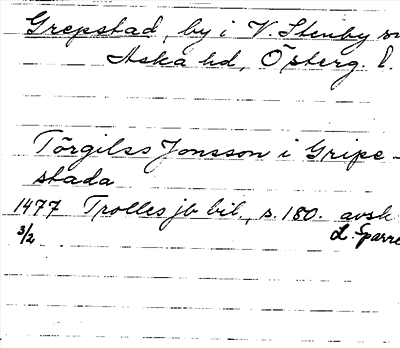 Grepstad, by i V. Stenby sn
Aska hd, Östergl.
Torgilss Jonsson i Gripe-
stada
1477 Trolles jb bil., s. 180. avskr
3/2 L. Sparre